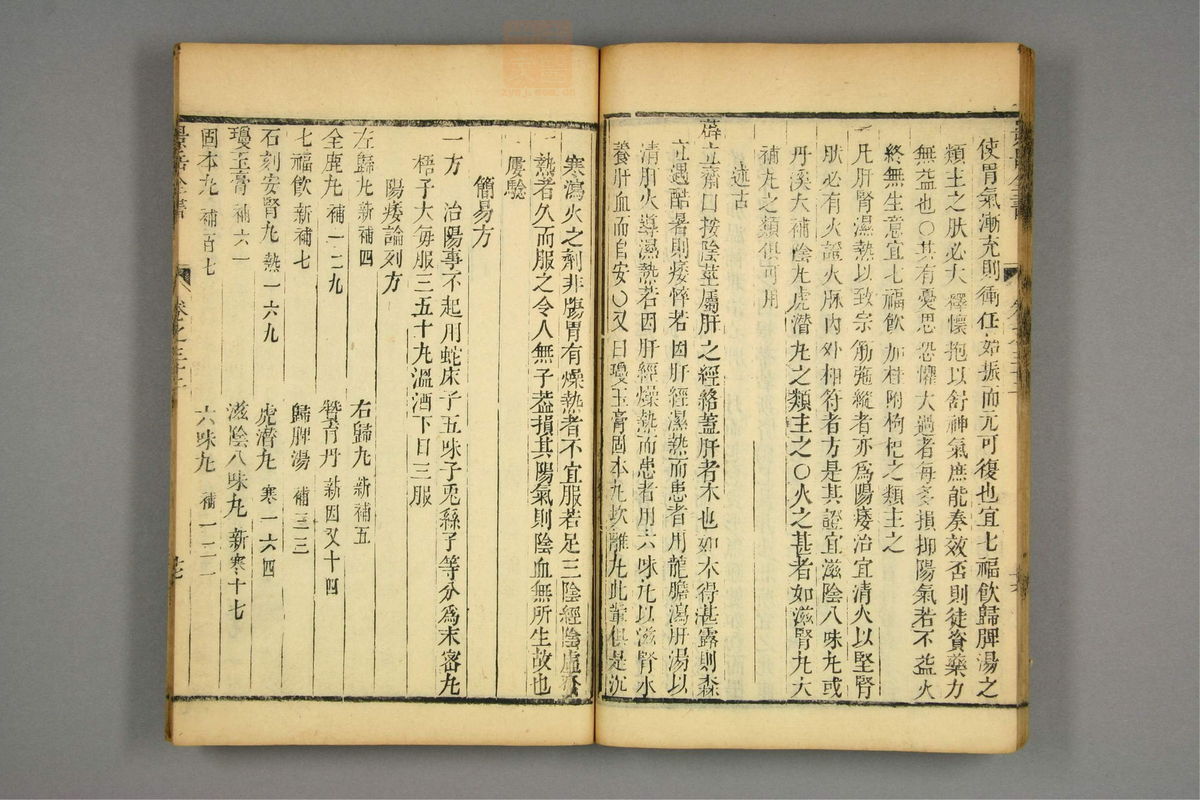 使胃氣漸充則衝任始振而元可復也宜七福飲歸脾湯之
類主之然必大釋懷抱以舒神氣庶能奏效否則徒資藥力
無益也○其有憂思恐懼太過者每多損抑陽氣若不益火
終無生意宜七福飲加桂附枸杞之類主之
一凡肝腎濕熱以致宗筋弛縱者亦爲陽痿治宜清火以堅腎
然必有火證火脉內外相符者方是其證宜滋陰八味丸或
丹溪大補陰丸虎潛丸之類主之○火之甚者如滋腎丸大
補丸之類俱可用
述古
薛立齋曰按陰莖屬肝之經絡蓋肝者木也如木得湛露則森
立遇酷暑則痿悴若因肝經濕熱而患者用龍膽瀉肝湯以
清肝火導濕熱若因肝經燥熱而患者用六味丸以滋腎水
養肝血而自安○又曰瓊玉膏固本丸坎離丸此輩俱是沉
寒瀉火之劑非腸胃有燥熱者不宜服若足三陰經陰虛發
熱者久而服之令人無子蓋損其陽氣則陰血無所生故也
屢驗
簡易方
一方 治陽事不起用蛇床子五味子兎絲子等分爲末蜜丸
梧子大每服三五十丸溫酒下日三服
陽痿論列方
左歸丸 新補四 右歸丸 新補五
全鹿丸 補一二九 贊育丹 新因又十四
七福飲 新補七 歸脾湯 補三二
石刻安腎丸 熱一六九 虎潛丸 寒一六四
瓊玉膏 補六一 滋陰八味丸 新寒十七
固本丸 補百七 六味丸 補一二一
景岳全書 卷之三十二